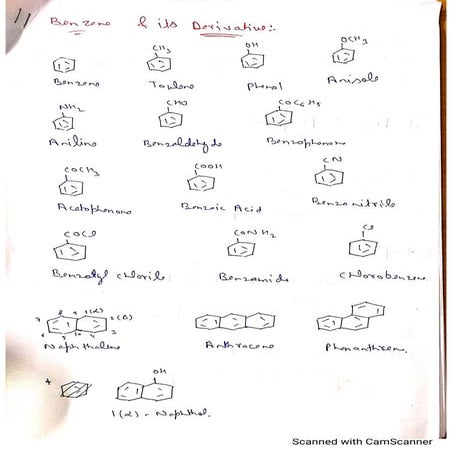 11
Benzene & its Derivative:-
CH3 OH OCH3
Benzene Toulene Phenol Anisole
NH2 CHO COC6H5
Aniline Benzaldehyde Benzophenone
COCH3 COOH CN
Acetophenone Benzoic Acid Benzonitrile
COCl CONH2 Cl
Benzolyl chloride Benzamide Chlorobenzene
8 9 1(α)
7 2(β)
6 3
5 10 4
Naphthalene Anthracene Phenanthrene.
OH
1(α) - Naphthol.
Scanned with CamScanner